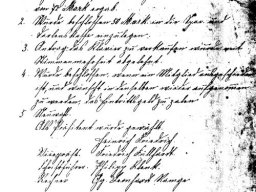 den 50 Mark ergab.
2. Wurde beschlossen 50 Mark in der Spar- und
Vorschusskasse einzulegen.
3. Antrag das Klavier zu verkaufen wurde mit
Stimmenmehrheit abgelehnt.
4. Wurde beschlossen, wenn ein Mitglied ausgeschieden
ist, und wünscht in derselben wieder aufgenommen
zu werden, das Eintrittsgeld zu zahlen
5. Neuwahl.
Als Präsident wurde gewählt.
Heinrich
Vicepräsid. Friedrich
Schriftführer Philipp
Rechner Gg. Leonhard Ramge